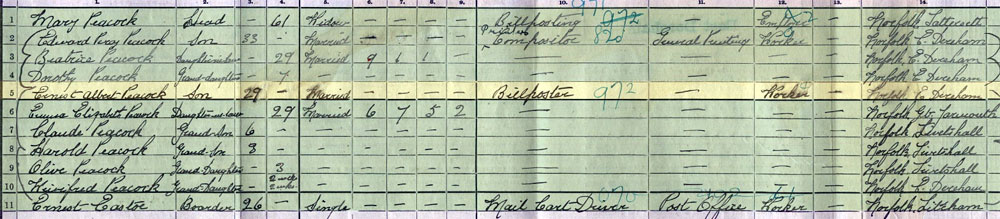 1. 2. 3. 4. 5. 6. 7. 8. 9. 10. 11. 12. 13. 14.
1 Mary Peacock Head — 61 Widow — — — — Billposting 972 — — Norfolk
2 Edward Percy Peacock Son 33 — Married — — — — Printers Compositor 820 General Printing Worker — Norfolk E. Dereham
3 Beatrice Peacock Daughter in law — 29 Married 9 1 1 — — — — — Norfolk E. Dereham
4 Dorothy Peacock Grand-daughter — 7 — — — — — — — — — Norfolk E. Dereham
5 Ernest Albert Peacock Son 29 — Married — — — — Billposter 972 — Worker — Norfolk E. Dereham
6 Emma Elizabeth Peacock Daughter-in-law — 29 Married 6 7 5 2 — — — — Norfolk Gt. Yarmouth
7 Claude Peacock Grand-Son 6 — — — — — — — — — — Norfolk
8 Harold Peacock Grand-Son 3 — — — — — — — — — — Norfolk
9 Olive Peacock Grand-Daughter — 3 — — — — — — — — — Norfolk
10 Winifred Peacock Grand-Daughter — — — — — — — — — — Norfolk E. Dereham
11 Ernest Boarder 26 — Single — — — — Mail Cart Driver Post Office Worker — Norfolk Litcham